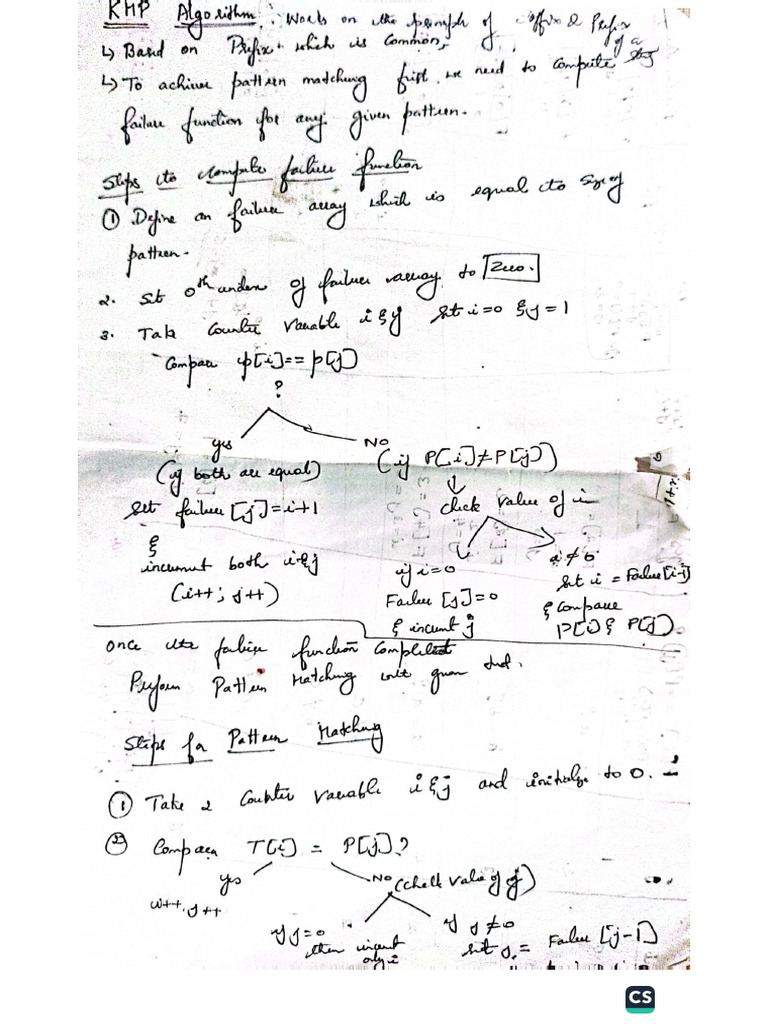 KMP Algorithm: Works on the principle of suffix & Prefix of a string
↳ Based on Prefix which is Common,
↳ To achieve pattern matching first we need to compute
failure function for any given pattern.
Steps to compute failure function
① Define an failure array which is equal to size of
pattern.
2. Set 0th index of failure array to Zero.
3. Take Counter Variable i & j set i=0 & j=1
Compare p[i]==p[j]
?
yes No
(if both are equal) (if P[i]≠P[j])
set failure[j]=i+1 check value of i
& if i=0 i≠0
increment both i&j Failure[j]=0 set i=Failure[i-1]
(i++; j++) & increment j & Compare P[i] & P[j]
once the failure function Completed
Perform Pattern Matching with given text.
Steps for Pattern Matching
① Take 2 Counter Variable i & j and initialize to 0.
② Compare T[i] = P[j]?
yes No (check value of j)
i++, j++
if j=0 if j≠0
then increment only i set j = Failure [j-1]
CS